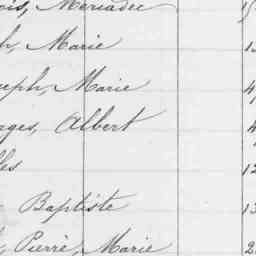 ois, Meriadec
h, Marie
seph, Marie
ges, Albert
les
Baptiste
Pierre, Marie